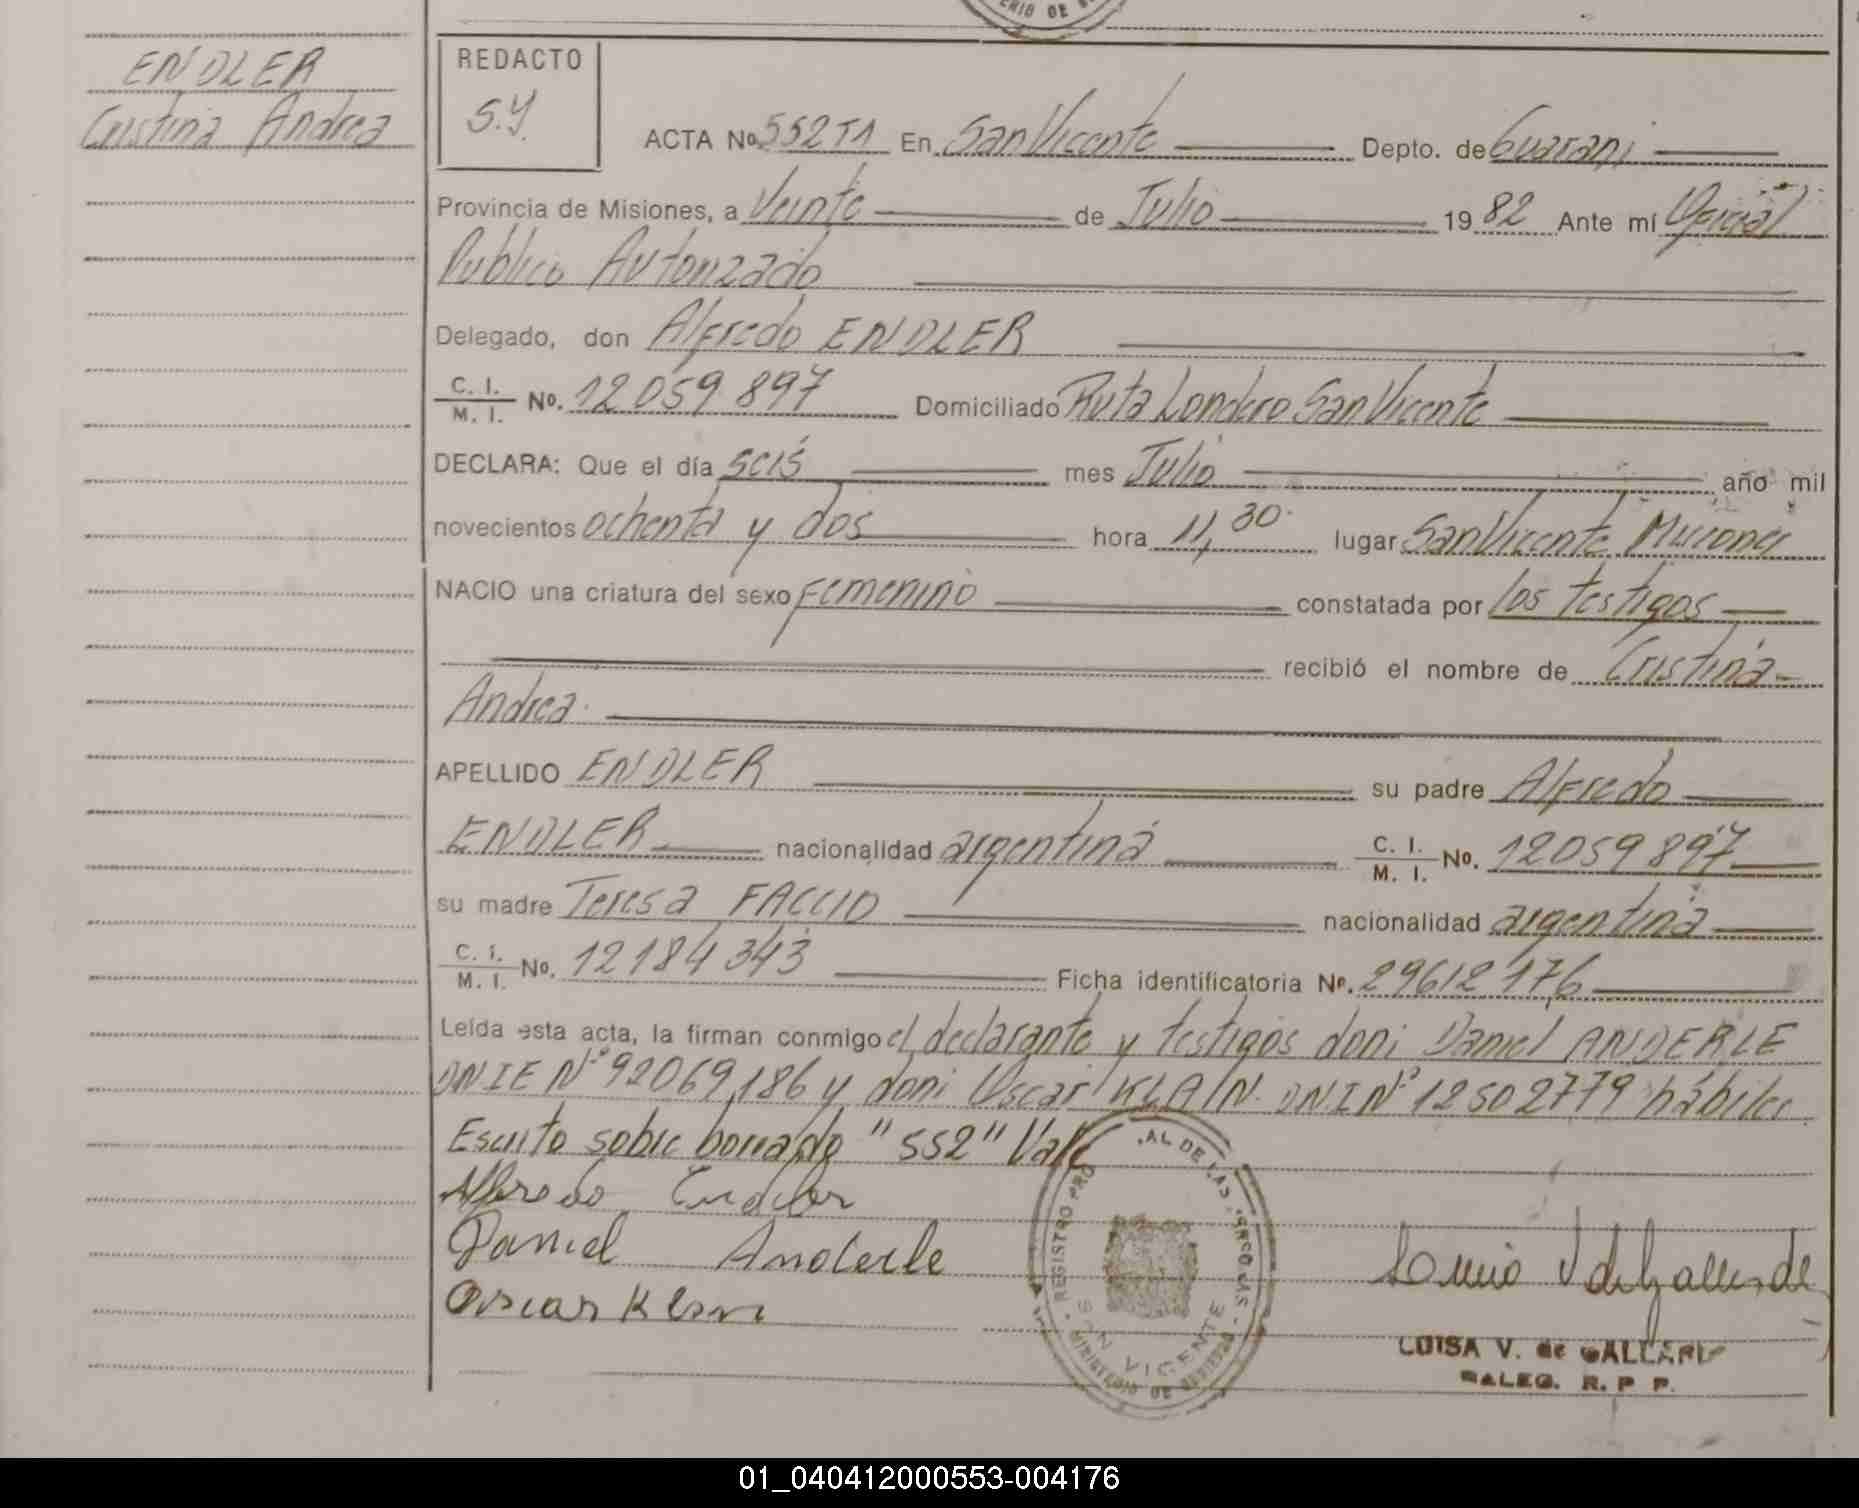 ERIO DE
ENDLER
Cristina Andrea
REDACTO
S.Y.
ACTA No. 552 T1 En San Vicente Depto. de Guarani
Provincia de Misiones, a Veinte de Julio 19 82 Ante mí Oficial
Publico Autorizado
Delegado, don Alfredo ENDLER
C. I. / M. I. No. 12 059 897 Domiciliado Ruta Londero San Vicente
DECLARA: Que el día seis mes Julio año mil
novecientos ochenta y dos hora 11,30 lugar San Vicente Misiones
NACIO una criatura del sexo Femenino constatada por los testigos
recibió el nombre de Cristina
Andrea
APELLIDO ENDLER su padre Alfredo
ENDLER nacionalidad argentina C. I. / M. I. No. 12059897
su madre Teresa FACCIO nacionalidad argentina
C. I. / M. I. No. 12184343 Ficha identificatoria No. 29612176
Leída esta acta, la firman conmigo el declarante y testigos doni Daniel ANDERLE
DNIE Nº 92069186 y doni Oscar KLAIN. DNI Nº 12502779 hábiles
Escrito sobre borrado "552" Vale
Alfredo Endler
Daniel Anderle
Oscar Klain
REGISTRO PRO AL DE LAS
SAN VICENTE
MINISTERIO DE GOBIERNO
LUISA V. de GALLARD
DALEG. R. P P.
01_040412000553-004176